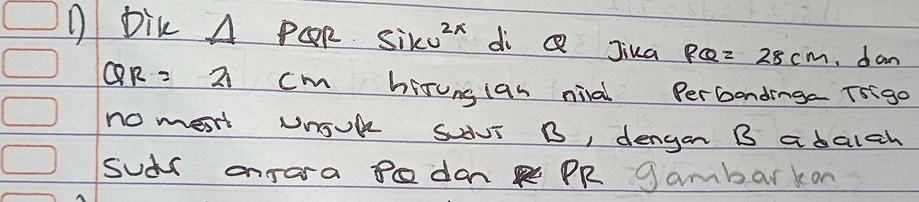 1) Dik Δ PQR. Siku²ˣ di Q Jika PQ = 28 cm, dan
QR = 21 cm hitunglah nilai Perbandinga Trigo
nometri Untuk Sudut B, dengan B adalah
Sudut antara PQ dan PR gambarkan